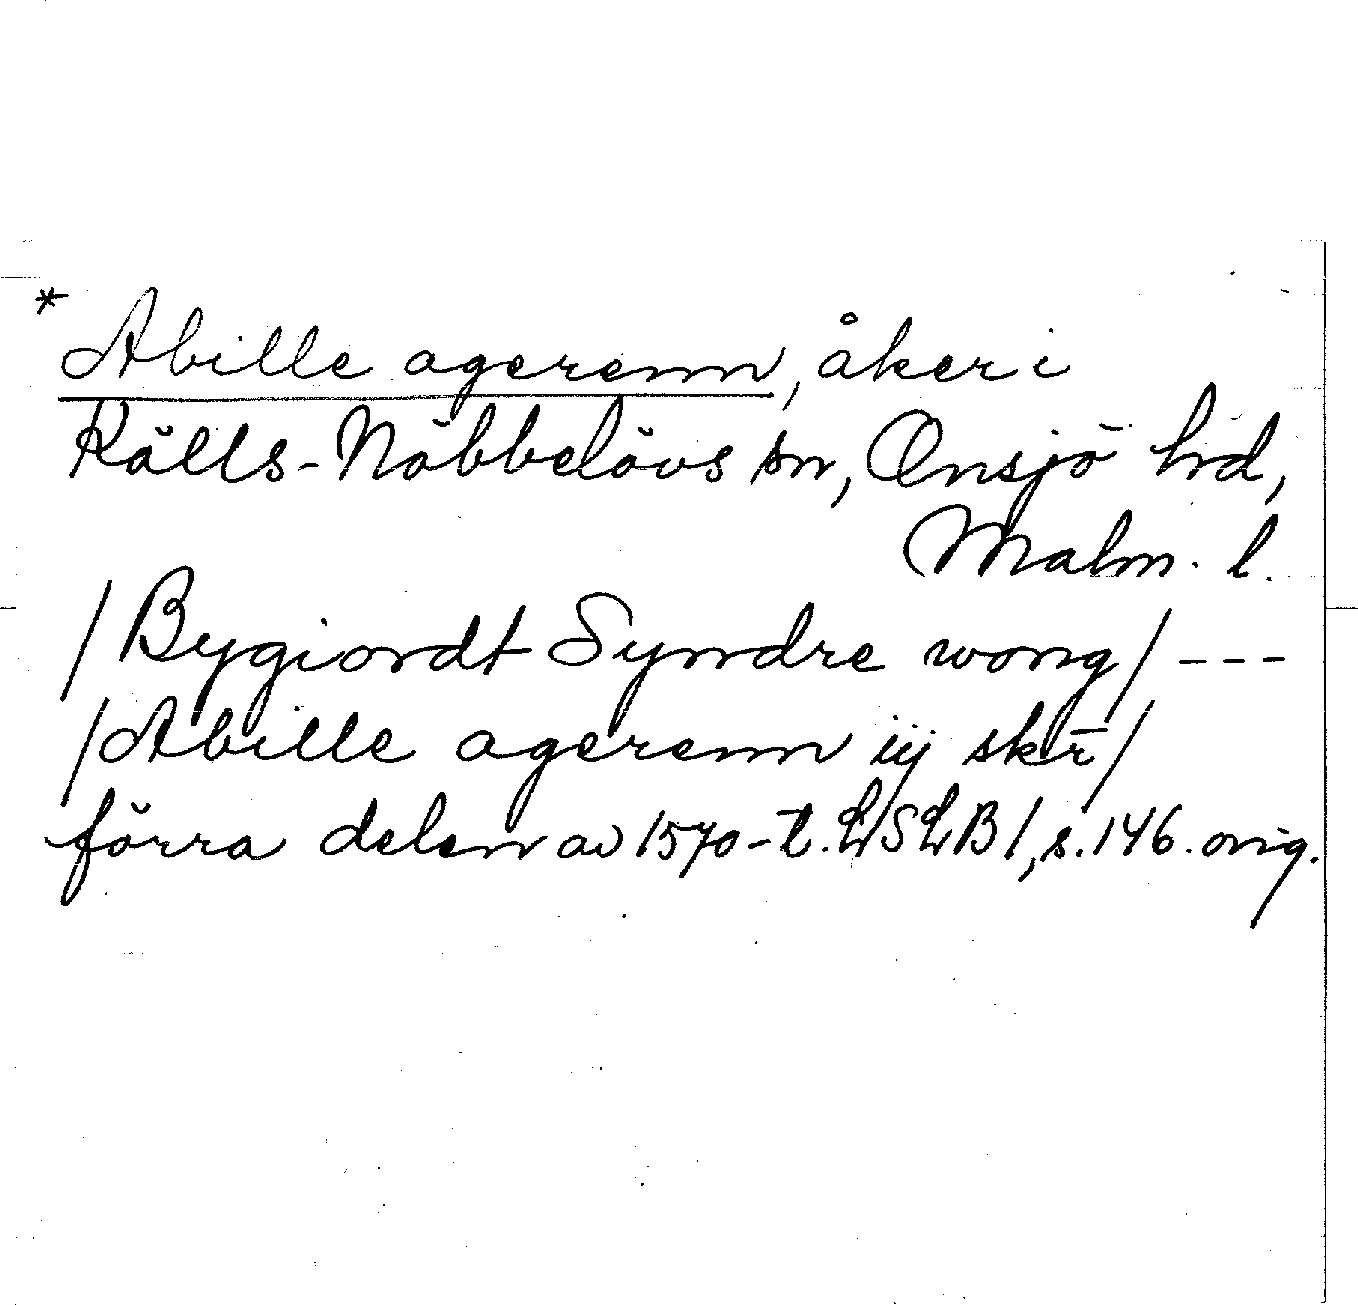 * Abille agerenn, åker i
Källs-Nöbbelövs sn, Onsjö hd,
Malm. l.
/Bygiordt Syndre wong/ ---
/Abille agerenn iij skr̄/
förra delen av 1570-t. LSLB 1, s. 146. orig.